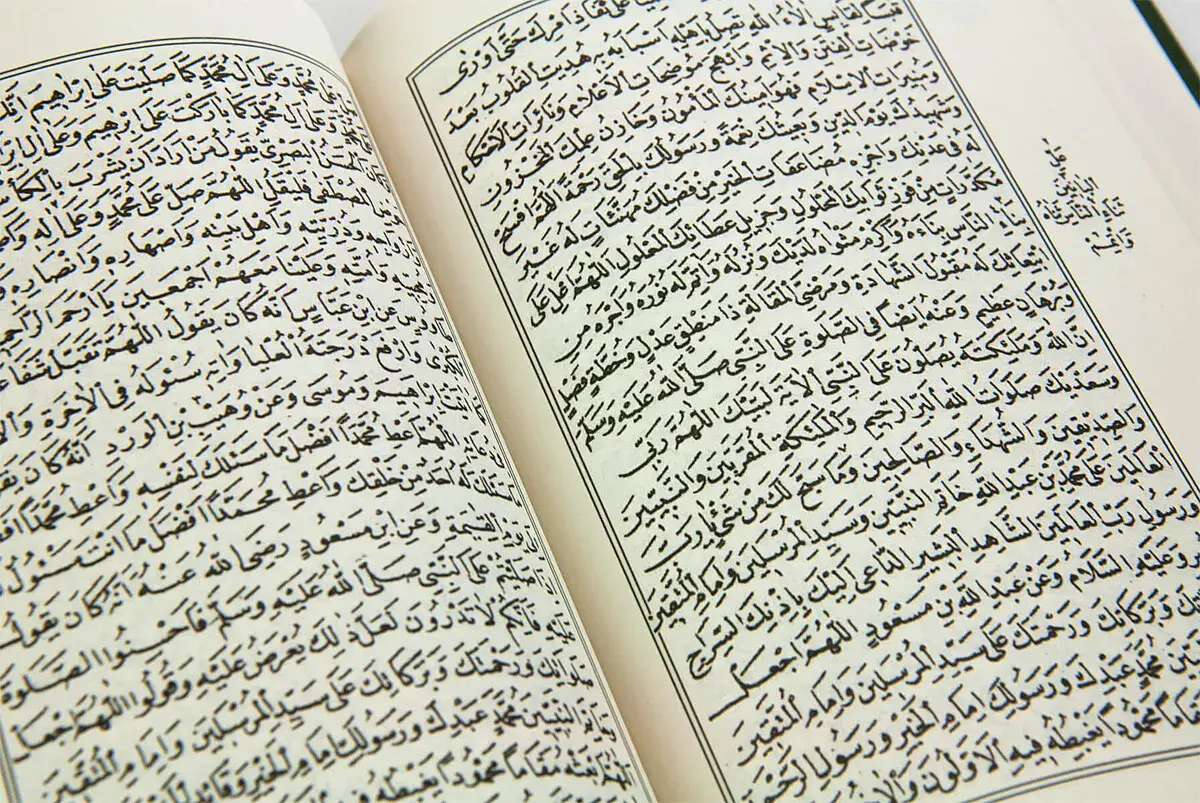 على نفاذ امرك حتى اورى
قبسا لقابس آلاء الله تصل باهله اسبابه به هديت القلوب بعد
خوضات الفتن والاثم وانهج موضحات الاعلام ونائرات الاحكام
ومنيرات الاسلام فهو امينك المأمون وخازن علمك المخزون
وشهيدك يوم الدين وبعيثك نعمة ورسولك بالحق رحمة اللهم افسح
له في عدنك واجزه مضاعفات الخير من فضلك مهنئات له غير
مكدرات من فوز ثوابك المحلول وجزيل عطائك المعلول اللهم اعل على
بناء الناس بناءه واكرم مثواه لديك ونزله واتم له نوره واجزه من
ابتعاثك له مقبول الشهادة ومرضي المقالة ذا منطق عدل وخطة فصل
وبرهان عظيم وعنه ايضا في الصلوة على النبي صلى الله عليه وسلم
ان الله وملئكته يصلون على النبي الاية لبيك اللهم ربي
وسعديك صلوات الله البر الرحيم والملئكة المقربين والنبيين
والصديقين والشهداء والصالحين وما سبح لك من شئ يا رب
العالمين على محمد بن عبد الله خاتم النبيين وسيد المرسلين وامام المتقين
ورسول رب العالمين الشاهد البشير الداعي اليك باذنك السراج
وعليه السلام وعن عبد الله بن مسعود اللهم اجعل
وبركاتك ورحمتك على سيد المرسلين وامام المتقين
محمد عبدك ورسولك امام الخير ورسول الرحمة
محمودا يغبطه فيه الاولون
على
البانين
ثناء الناس ثناه
على محمد وعلى ال محمد كما صليت على ابراهيم
وعلى ال محمد كما باركت على ابرهيم وعلى ال
الحسن البصرى يقول من اراد ان يشرب بالكأ
المصطفى فليقل اللهم صل على محمد وعلى اله
واولاده وازواجه وذريته واهل بيته واصهاره وانصاره
ومحبيه وامته وعلينا معهم اجمعين يا ارحم الراحمين
طاووس عن ابن عباس انه كان يقول اللهم تقبل شفاعة
الكبرى وارفع درجته العليا واته سؤله فى الاخرة
ابراهيم وموسى وعن وهيب بن الورد انه كان يقول
دعائه اللهم اعط محمدا افضل ما سئلك لنفسه واعط محمدا
سئلك له احد من خلقك واعط محمدا افضل ما انت مسؤل
الى يوم القيمة وعن ابن مسعود رضى الله عنه انه كان يقول
اذا صليتم على النبي صلى الله عليه وسلم فاحسنوا الصلوة
عليه فانكم لا تدرون لعل ذلك يعرض عليه وقولوا اللهم اجعل
صلواتك ورحمتك وبركاتك على سيد المرسلين وامام المتقين
وخاتم النبيين محمد عبدك ورسولك امام الخير وقائد الخير
اللهم ابعثه مقاما محمودا يغبطه